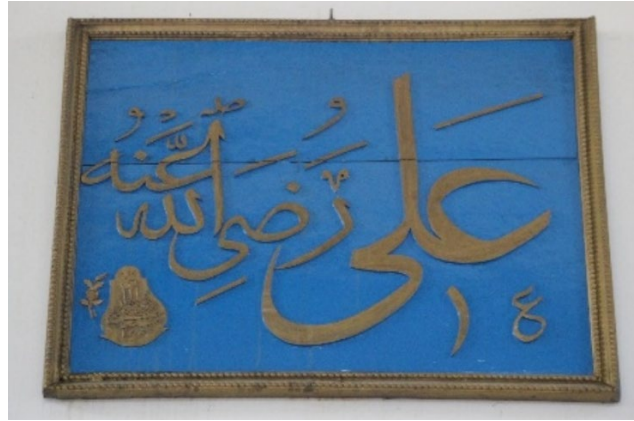 على رَضِيَ الله عَنْهُ